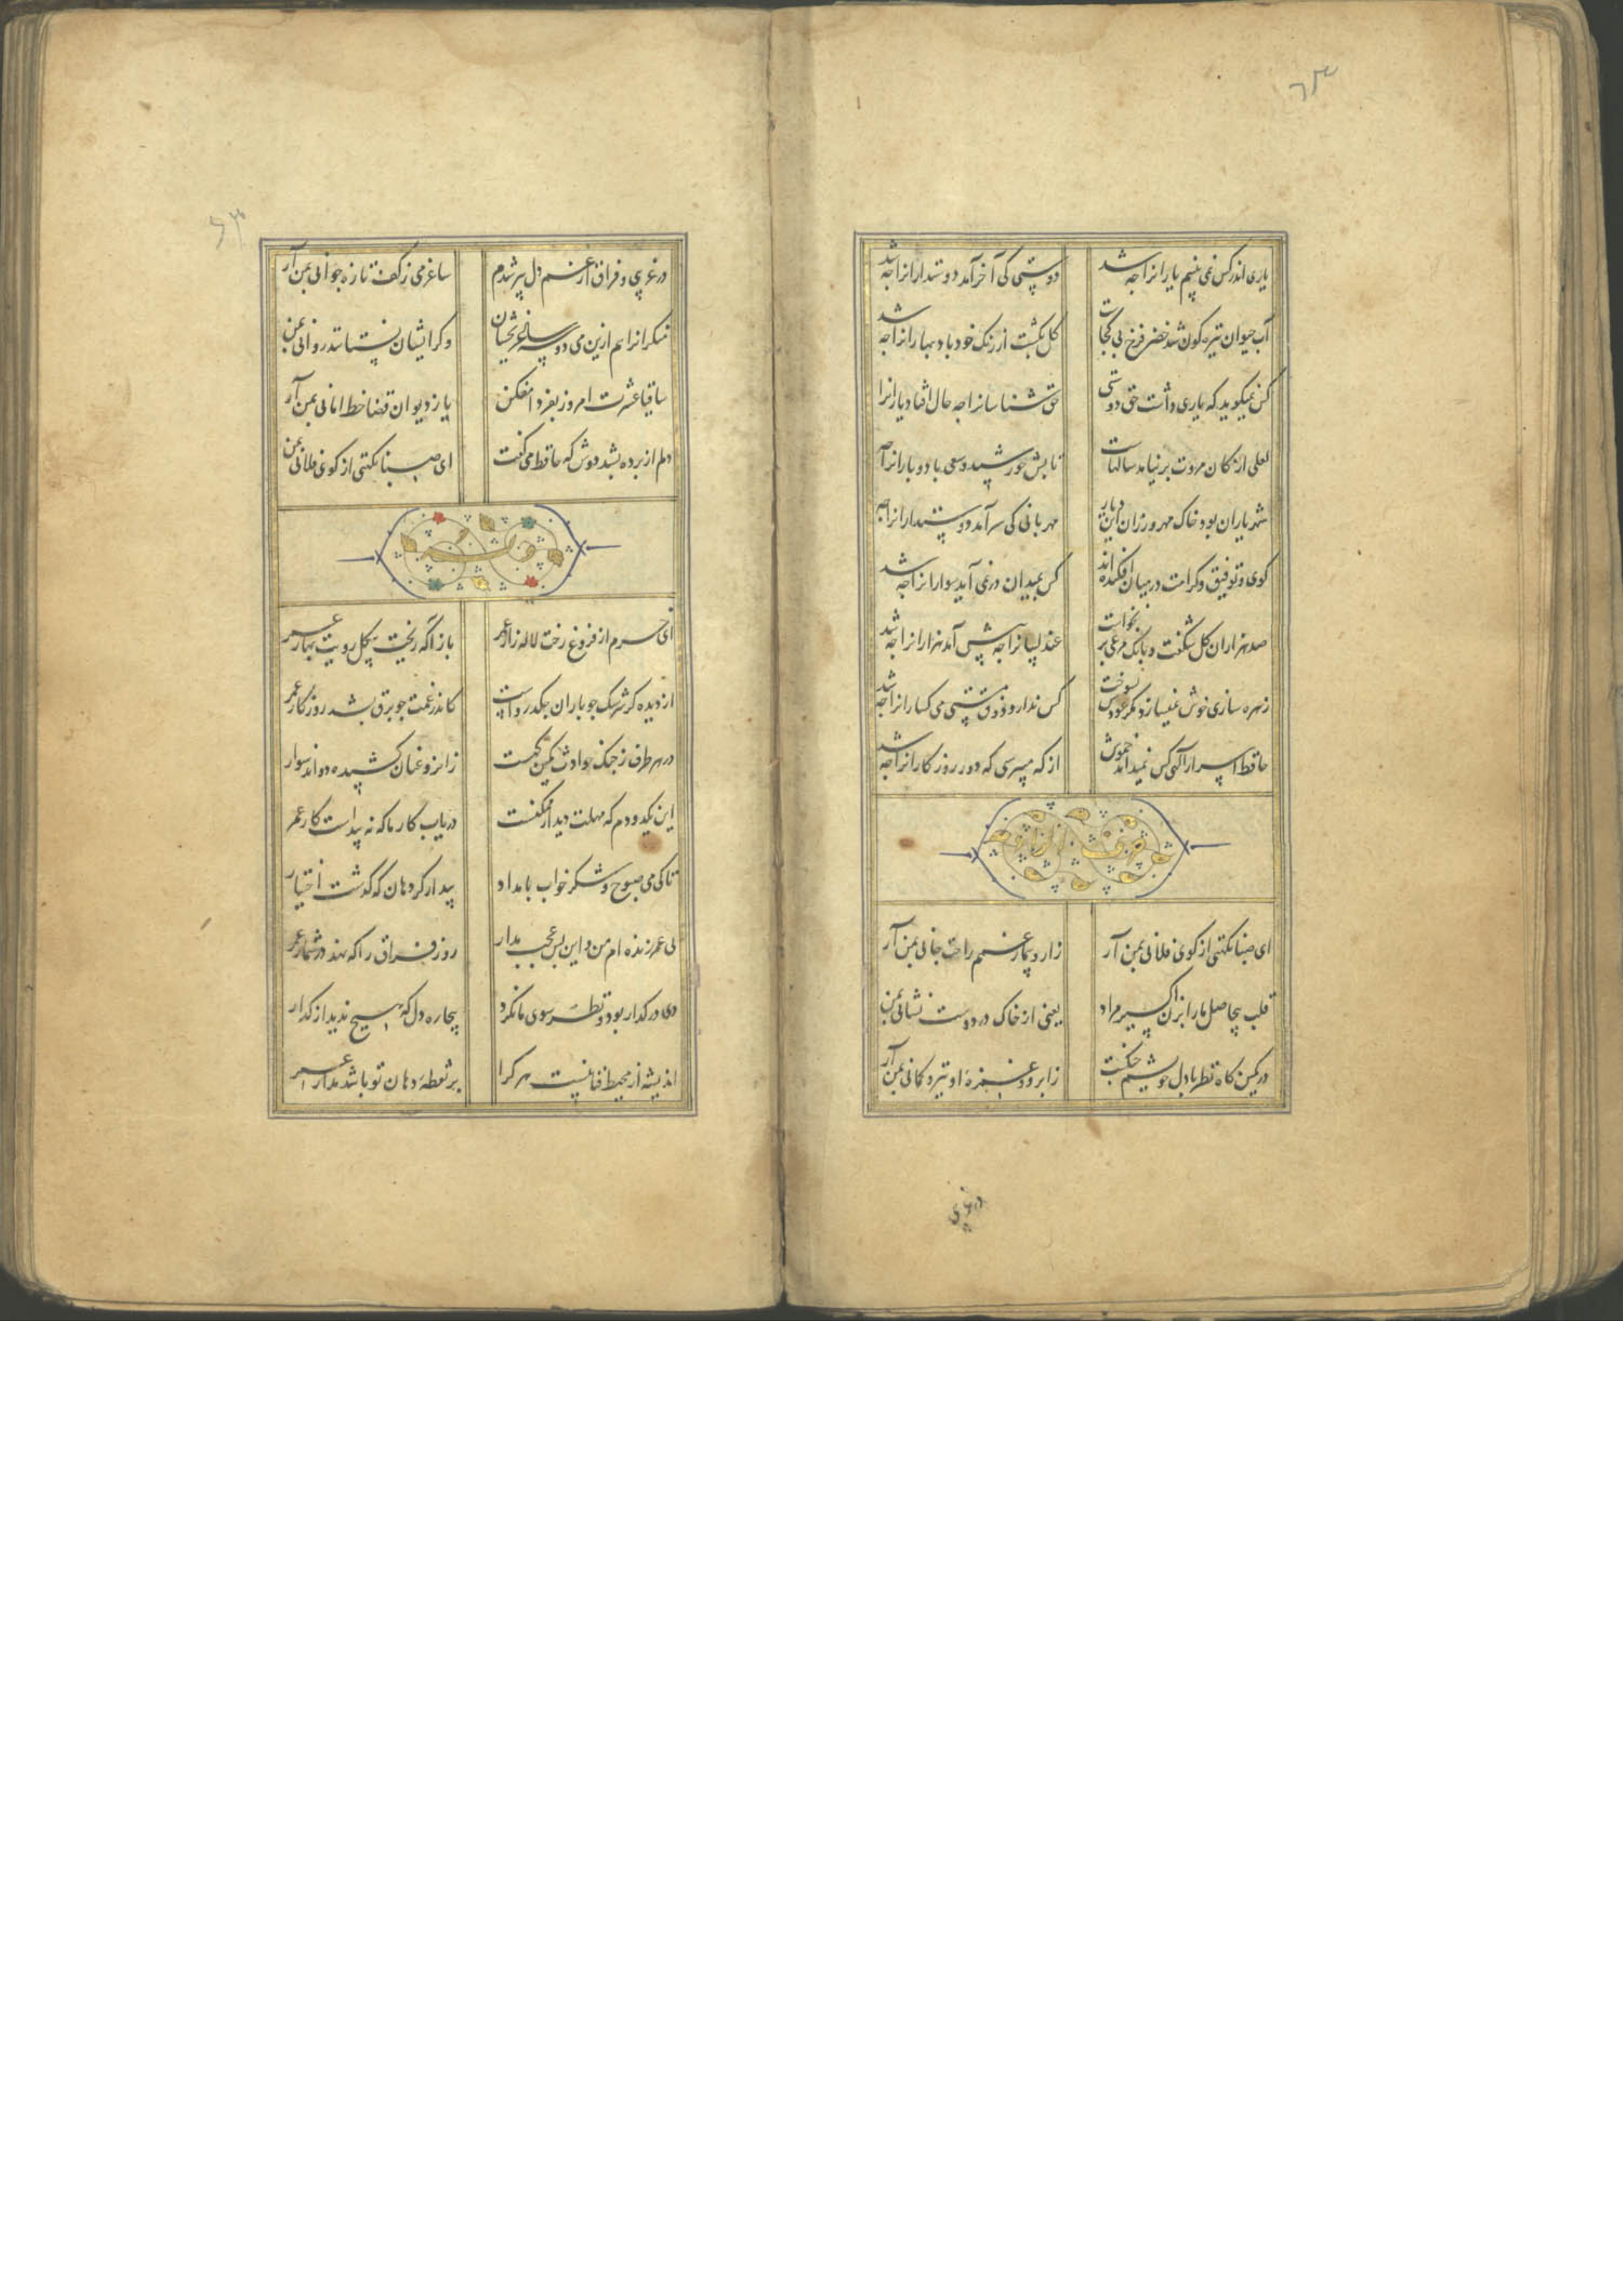 یاری اندر کس نمی بینم یارانرا چه شد
دوستی کی آخر آمد دوستدارانرا چه شد
آب حیوان تیره کون شد خضر فرخ پی کجاست
کل بکشت از رنک خود باد بهارانرا چه شد
کس نمیکوید که یاری داشت حق دوستی
حق شناسانرا چه حال افتاد یارانرا
لعلی از کان مروت برنیامد سالهاست
تابش خورشید و سعی باد و بارانرا چه
شهر یاران بود خاک مهرورزان این دیار
مهربانی کی سر آمد دوستدارانرا چه
کوی و توفیق و کرامت در میان افکنده اند
کس بمیدان در نمی آید سوارانرا چه شد
صد هزاران کل شکفت و بانک مرغی بر نخواست
عندلیبانرا چه پیش آمد هزارانرا چه شد
زهره سازی خوش نمیسازد مکر عودش بسوخت
کس ندارد ذوق مستی می کسارانرا چه شد
حافظ اسرار آلهی کس نمیداند خموش
از که میپرسی که دور روزکارانرا چه شد
ای صبا نکهتی از کوی فلانی بمن آر
زار و بیمار غمم راحت جانی بمن آر
قلب بیحاصل ما را بزن اکسیر مراد
یعنی از خاک در دوست نشانی بمن
در کمین کاه نظر با دل خویشم جنکست
ز ابرو و غمزهٔ او تیر و کمانی بمن آر
در غریبی
در غریبی و فراق از غم دل پیر شدم
ساغر می ز کف تازه جوانی بمن آر
منکرانرا هم ازین می دو سه ساغر بچشان
وکر ایشان نستانند روانی بمن
ساقیا عشرت امروز بفردا مفکن
یا ز دیوان قضا خط امانی بمن آر
دلم از برده بشد دوش که حافظ می کفت
ای صبا نکهتی از کوی فلانی بمن
ای خرم از فروغ رخت لاله زار عمر
باز آ که ریخت بی کل رویت بهار عمر
از دیده کر سرشک چو باران چکد رواست
کاندر غمت چو برق بشد روزکار عمر
در هر طرف ز جنک حوادث کمین کهیست
زانرو عنان کشیده دواند سوار
این یکدو دم که مهلت دیدار ممکنست
دریاب کار ما که نه پیداست کار عمر
تا کی می صبوح و شکر خواب بامداد
بیدار کرد هان که کذشت اختیار
بی عمر زنده ام من و این بس عجب مدار
روز فراق را که نهد در شمار عمر
دی در کذار بود و نظر سوی ما نکرد
بیچاره دل که هیچ ندید از کذار
اندیشه از محیط فنا نیست هر کرا
بر نقطهٔ دهان تو باشد مدار عمر